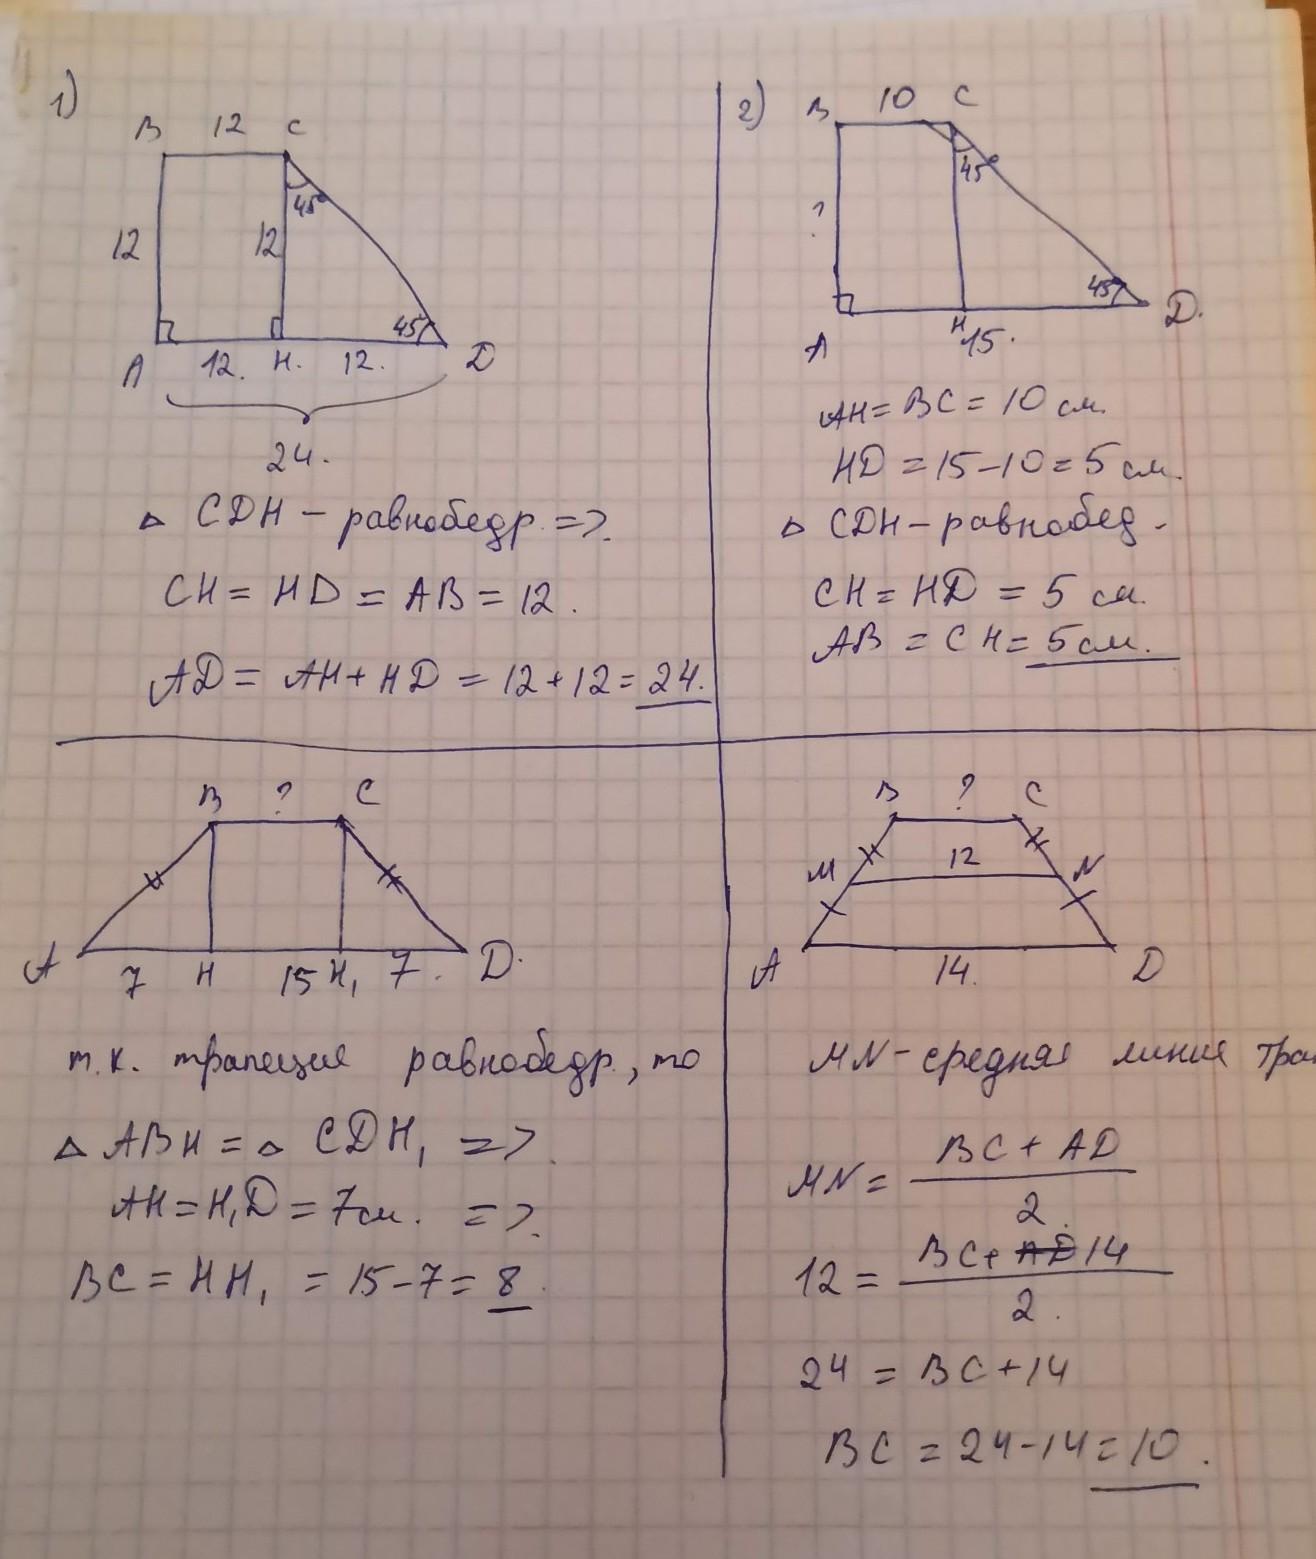 1)
B 12 C
45°
12 12
45°
A 12. H. 12. D
24.
△ CDH – равнобедр. =>.
CH = HD = AB = 12.
AD = AH + HD = 12 + 12 = 24.
2)
B 10 C
45°
?
45°
A H 15. D.
AH = BC = 10 см.
HD = 15 – 10 = 5 см.
△ CDH – равнобед.
CH = HD = 5 см.
AB = CH = 5 см.
B ? C
A 7 H 15 H₁ 7. D.
т.к. трапеция равнобедр., то
△ ABH = △ CDH₁ =>.
AH = H₁D = 7 см. =>.
BC = HH₁ = 15 – 7 = 8.
B ? C
M 12 N
A 14. D
MN – средняя линия тра
MN = BC + AD
2.
12 = BC + AD 14
2.
24 = BC + 14
BC = 24 - 14 = 10.